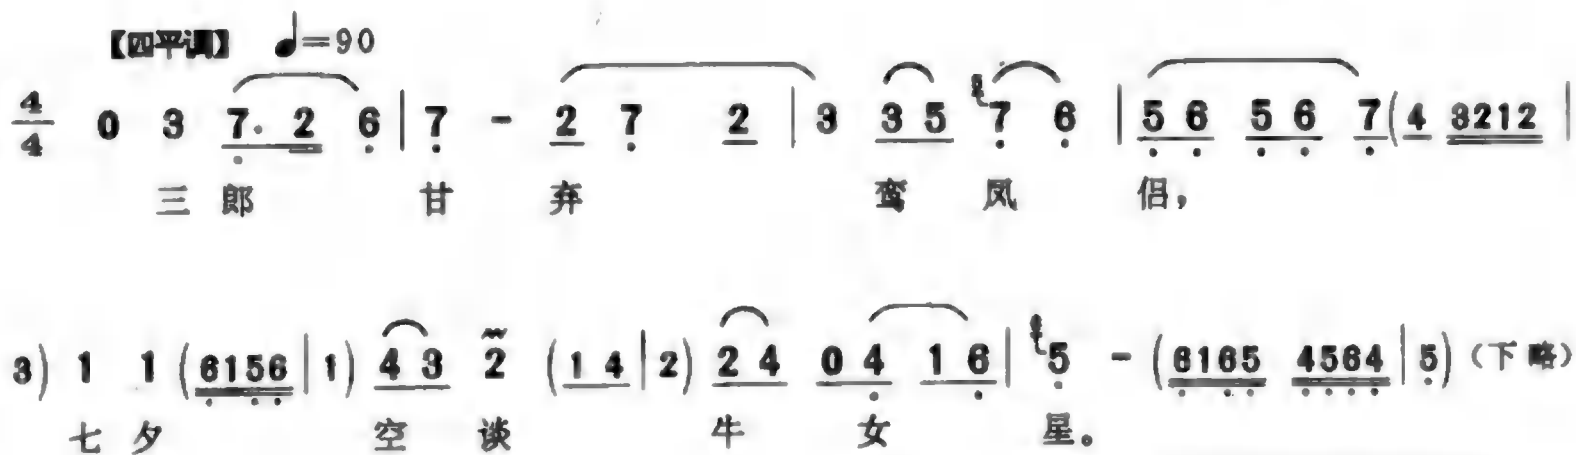 【四平调】 ♩=90
4/4 0 3 7. 2 6 | 7 - 2 7 2 | 3 3 5 7 6 | 5 6 5 6 7 (4 3212 |
三 郎 甘 弃 鸾 凤 侣，
3) 1 1 (6156 | 1) 4 3 2 (1 4 | 2) 2 4 0 4 1 6 | 5 - (6165 4564 | 5) (下略)
七 夕 空 谈 牛 女 星。